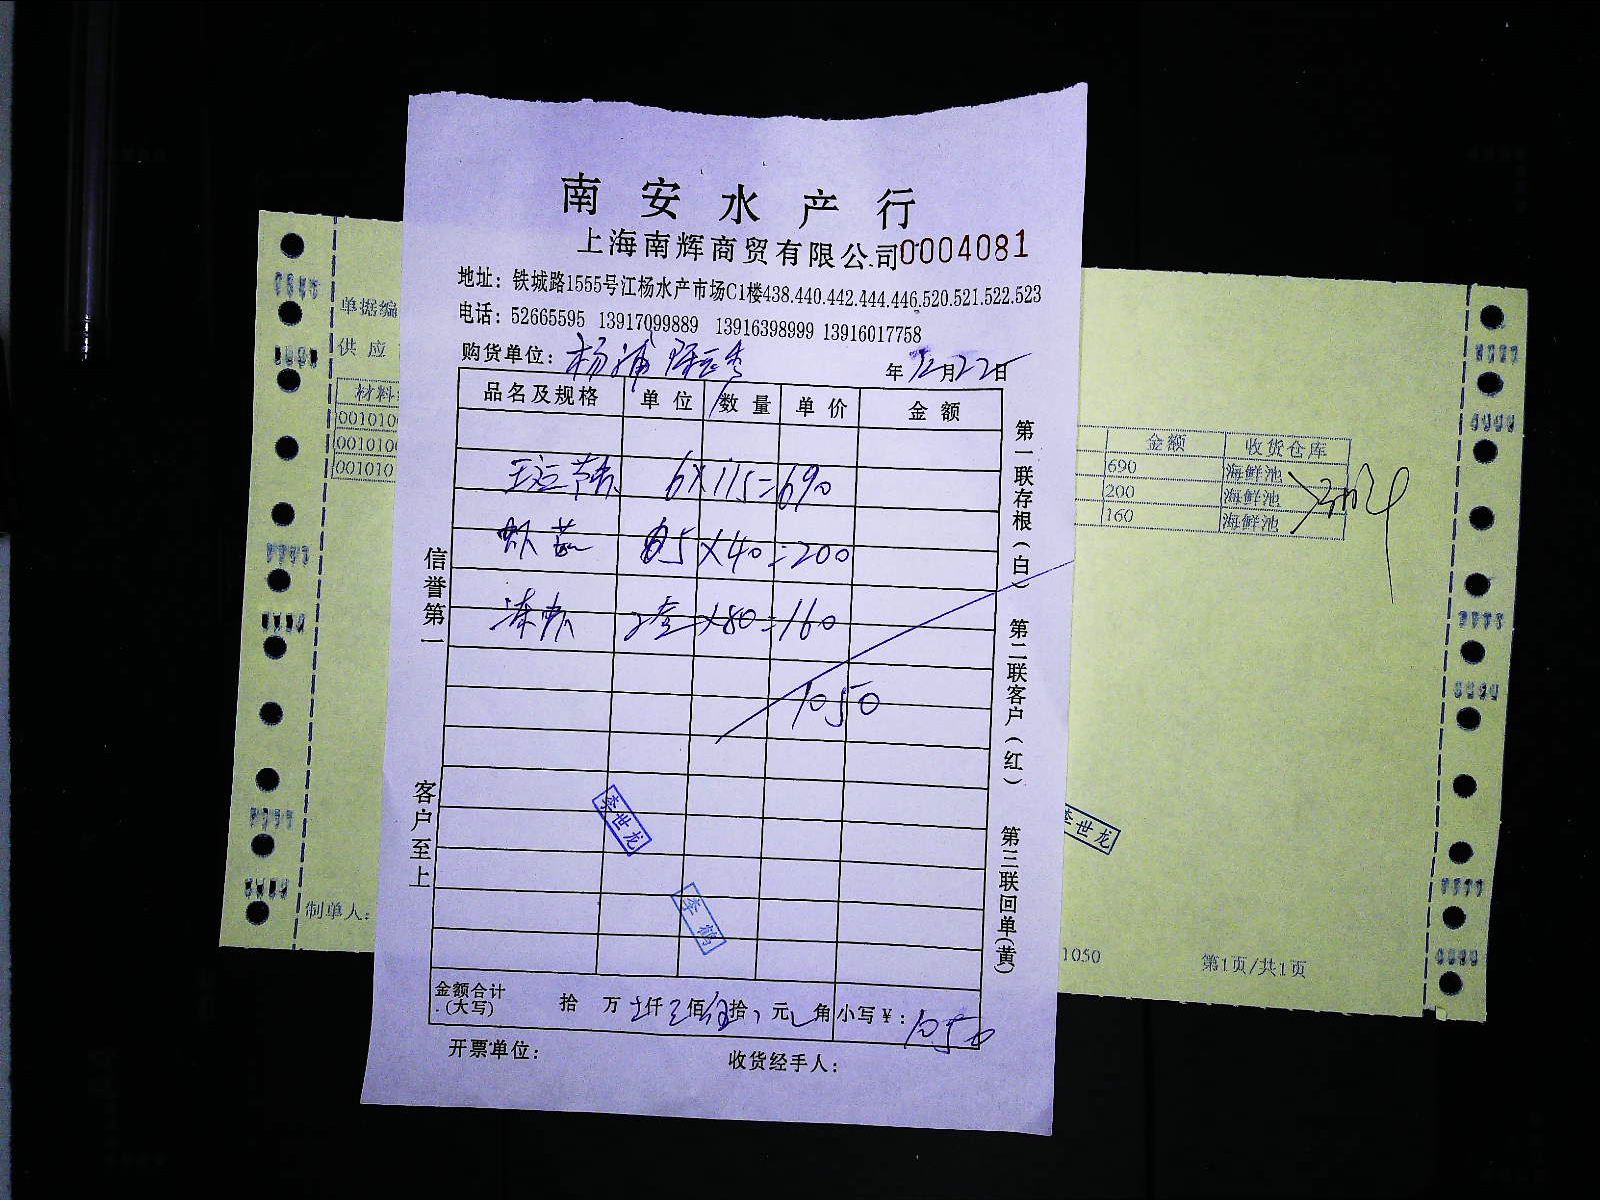 南安水产行
上海南辉商贸有限公司 0004081
地址：铁城路1555号江杨水产市场C1楼438.440.442.444.446.520.521.522.523
电话：52665595 13917099889 13916398999 13916017758
购货单位：杨浦
年12月22日
品名及规格 单位 数量 单价 金额
6×115=690
虾菇 5×40=200
2×80=160
1050
金额合计(大写) 拾 万 仟 佰 拾 元 角 小写￥：1050
开票单位： 收货经手人：
信誉第一
客户至上
第一联存根(白)
第二联客户(红)
第三联回单(黄)
李世龙
李鹤
单据编
供应
材料
001010
001010
001010
制单人：
金额 收货仓库
690 海鲜池
200 海鲜池
160 海鲜池
李世龙
1050
第1页/共1页